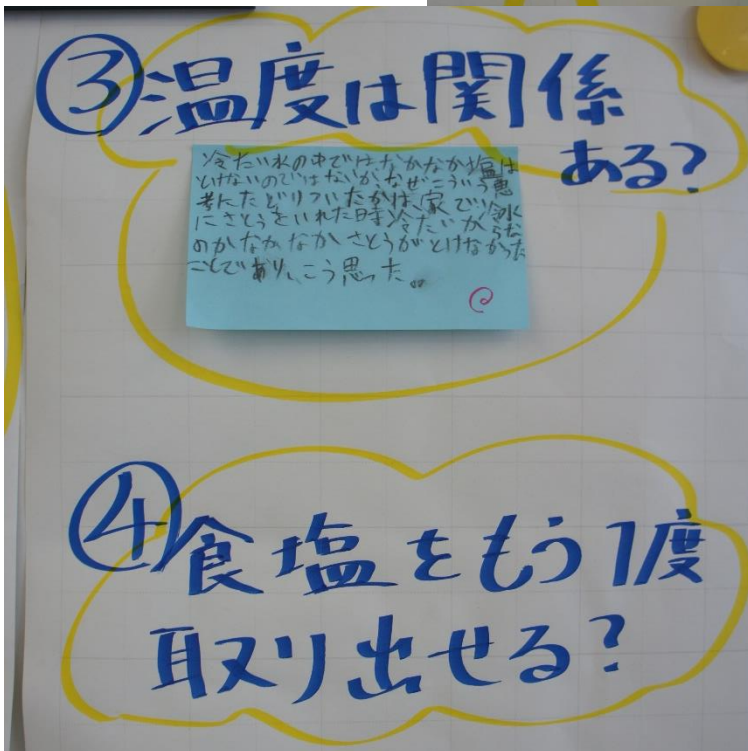 ③温度は関係
ある？
冷たい水の中ではなかなか塩は
とけないのではないか。なぜこういう思
考にたどりついたかは、家で冷水
にさとうをいれた時冷たいからな
のかなかなかさとうがとけなかった
ことであり、こう思った。
④食塩をもう1度
取り出せる？